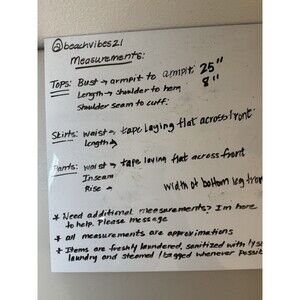 @beachvibes21
Measurements:
Tops: Bust → armpit to armpit: 25"
Length → shoulder to hem 8"
Shoulder seam to cuff:
Skirts: waist → tape laying flat across front:
Length →
Pants: waist → tape laying flat across front
Inseam
Rise - width of bottom leg
* Need additional measurements? I'm here
to help. Please message
* all measurements are approximations
* Items are freshly laundered, sanitized with
laundry and steamed / tagged whenever